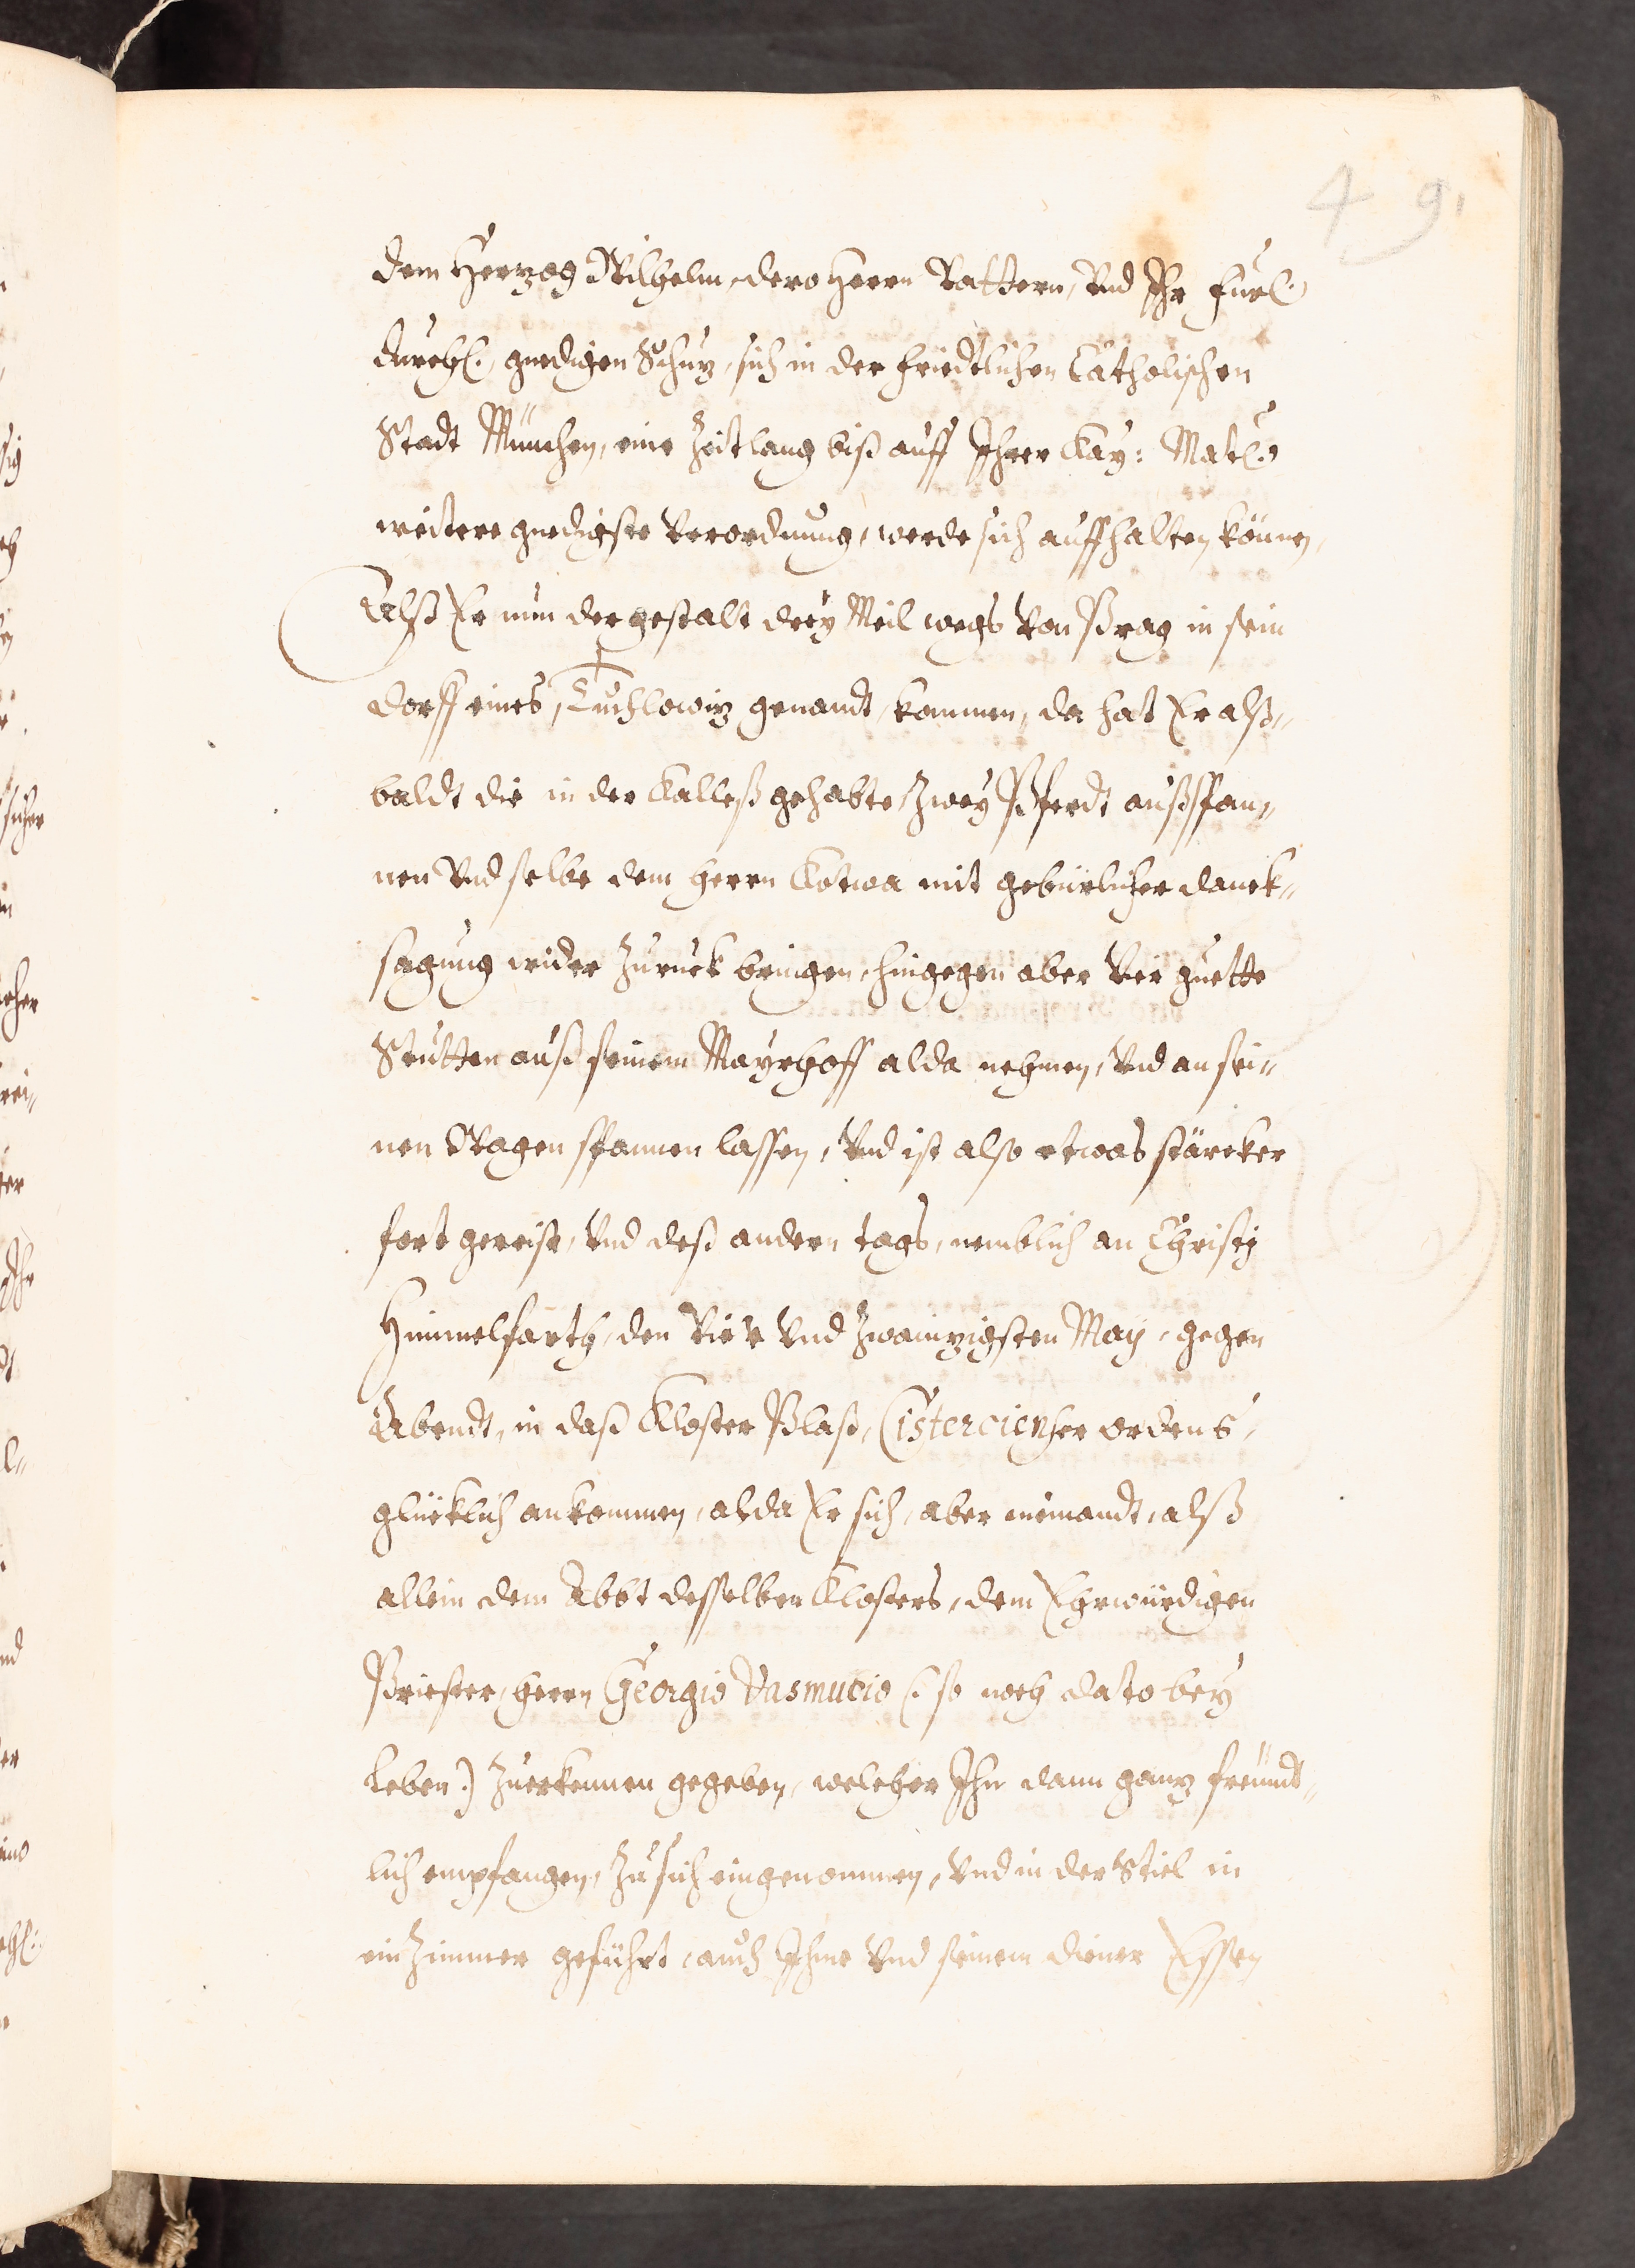 49.
dem Herzog Wilhelm, dero Herrn Vattern, Vnd Ihr Fürl.
Durchl. gnedigen Schuz, sich in der friedtlichen Catholischen
Stadt München, eine Zeitlang biß auff Ihrer Kay: Matt.
weitere gnedigste Verordnung, werde sich auffhalten können,
Alß Er nun dergestalt drey Meil wegs Von Prag in sein
dorff eines, Tuchlowiz genandt, kommen, da hat Er alß„
baldt die in der Kalleß gehabte, Zwey Pferdt außspan„
nen Vnd selbe dem Herrn Kotwa mit gebürlicher danck„
sagung wider Zuruck bringen, hingegen aber Vier guette
Stutten auß seinem Mayrhoff alda nehmen, Vnd an sei„
nen Wagen spannen lassen, Vnd ist also etwas stärcker
fort gereist, Vnd deß andern tags, nemblich an Christj
Himmelfarth, den Vier Vnd Zwainzigsten May, gegen
Abendt, in daß Kloster Plaß, Cistercienser ordens,
glücklich ankommen, alda Er sich, aber niemandt, alß
allein dem Abbt desselben Klosters, dem Ehrwürdigen
Priester, Herrn Georgio Vasmucio (: so noch dato bey
Leben:) Zuerkennen gegeben, welcher Ihn dann ganz freündt„
lich empfangen, Zu sich eingenommen, Vnd in der Stiel in
ein Zimmer geführt, auch Ihme Vnd seinem diener Essen